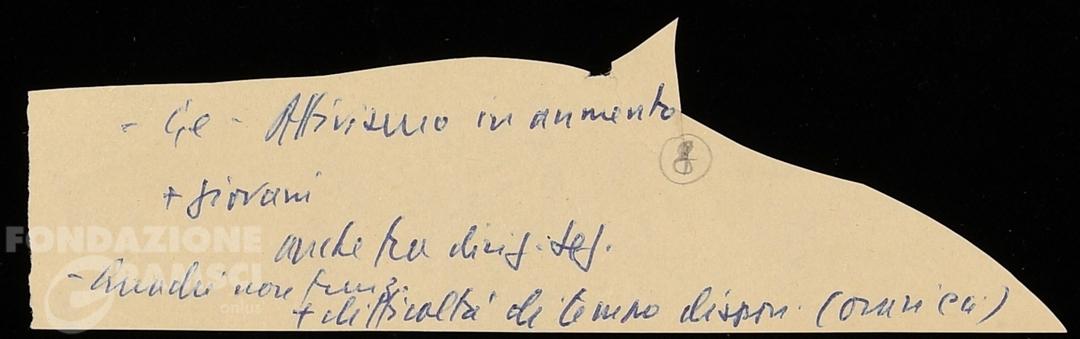 - Ge - Attivismo in aumento
8
+ giovani
anche tra dirig. seg.
- Quadri non funz.
+ difficoltà di tempo dispon. (orari ca)
FONDAZIONE
GRAMSCI
onlus